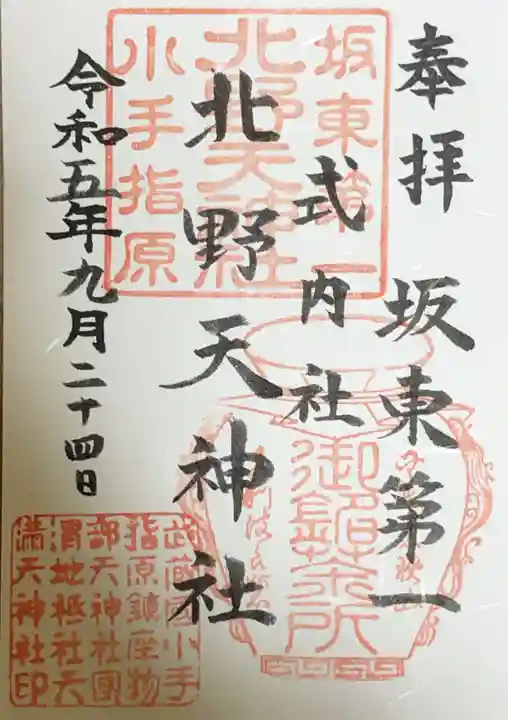 奉拝
坂東第一
式内社
北野天神社
令和五年九月二十四日
坂東第一
北野天神社
小手指原
御鎮祭所
武蔵国小手
指原鎮座物
部天神社國
渭地祇社天
満天神社印